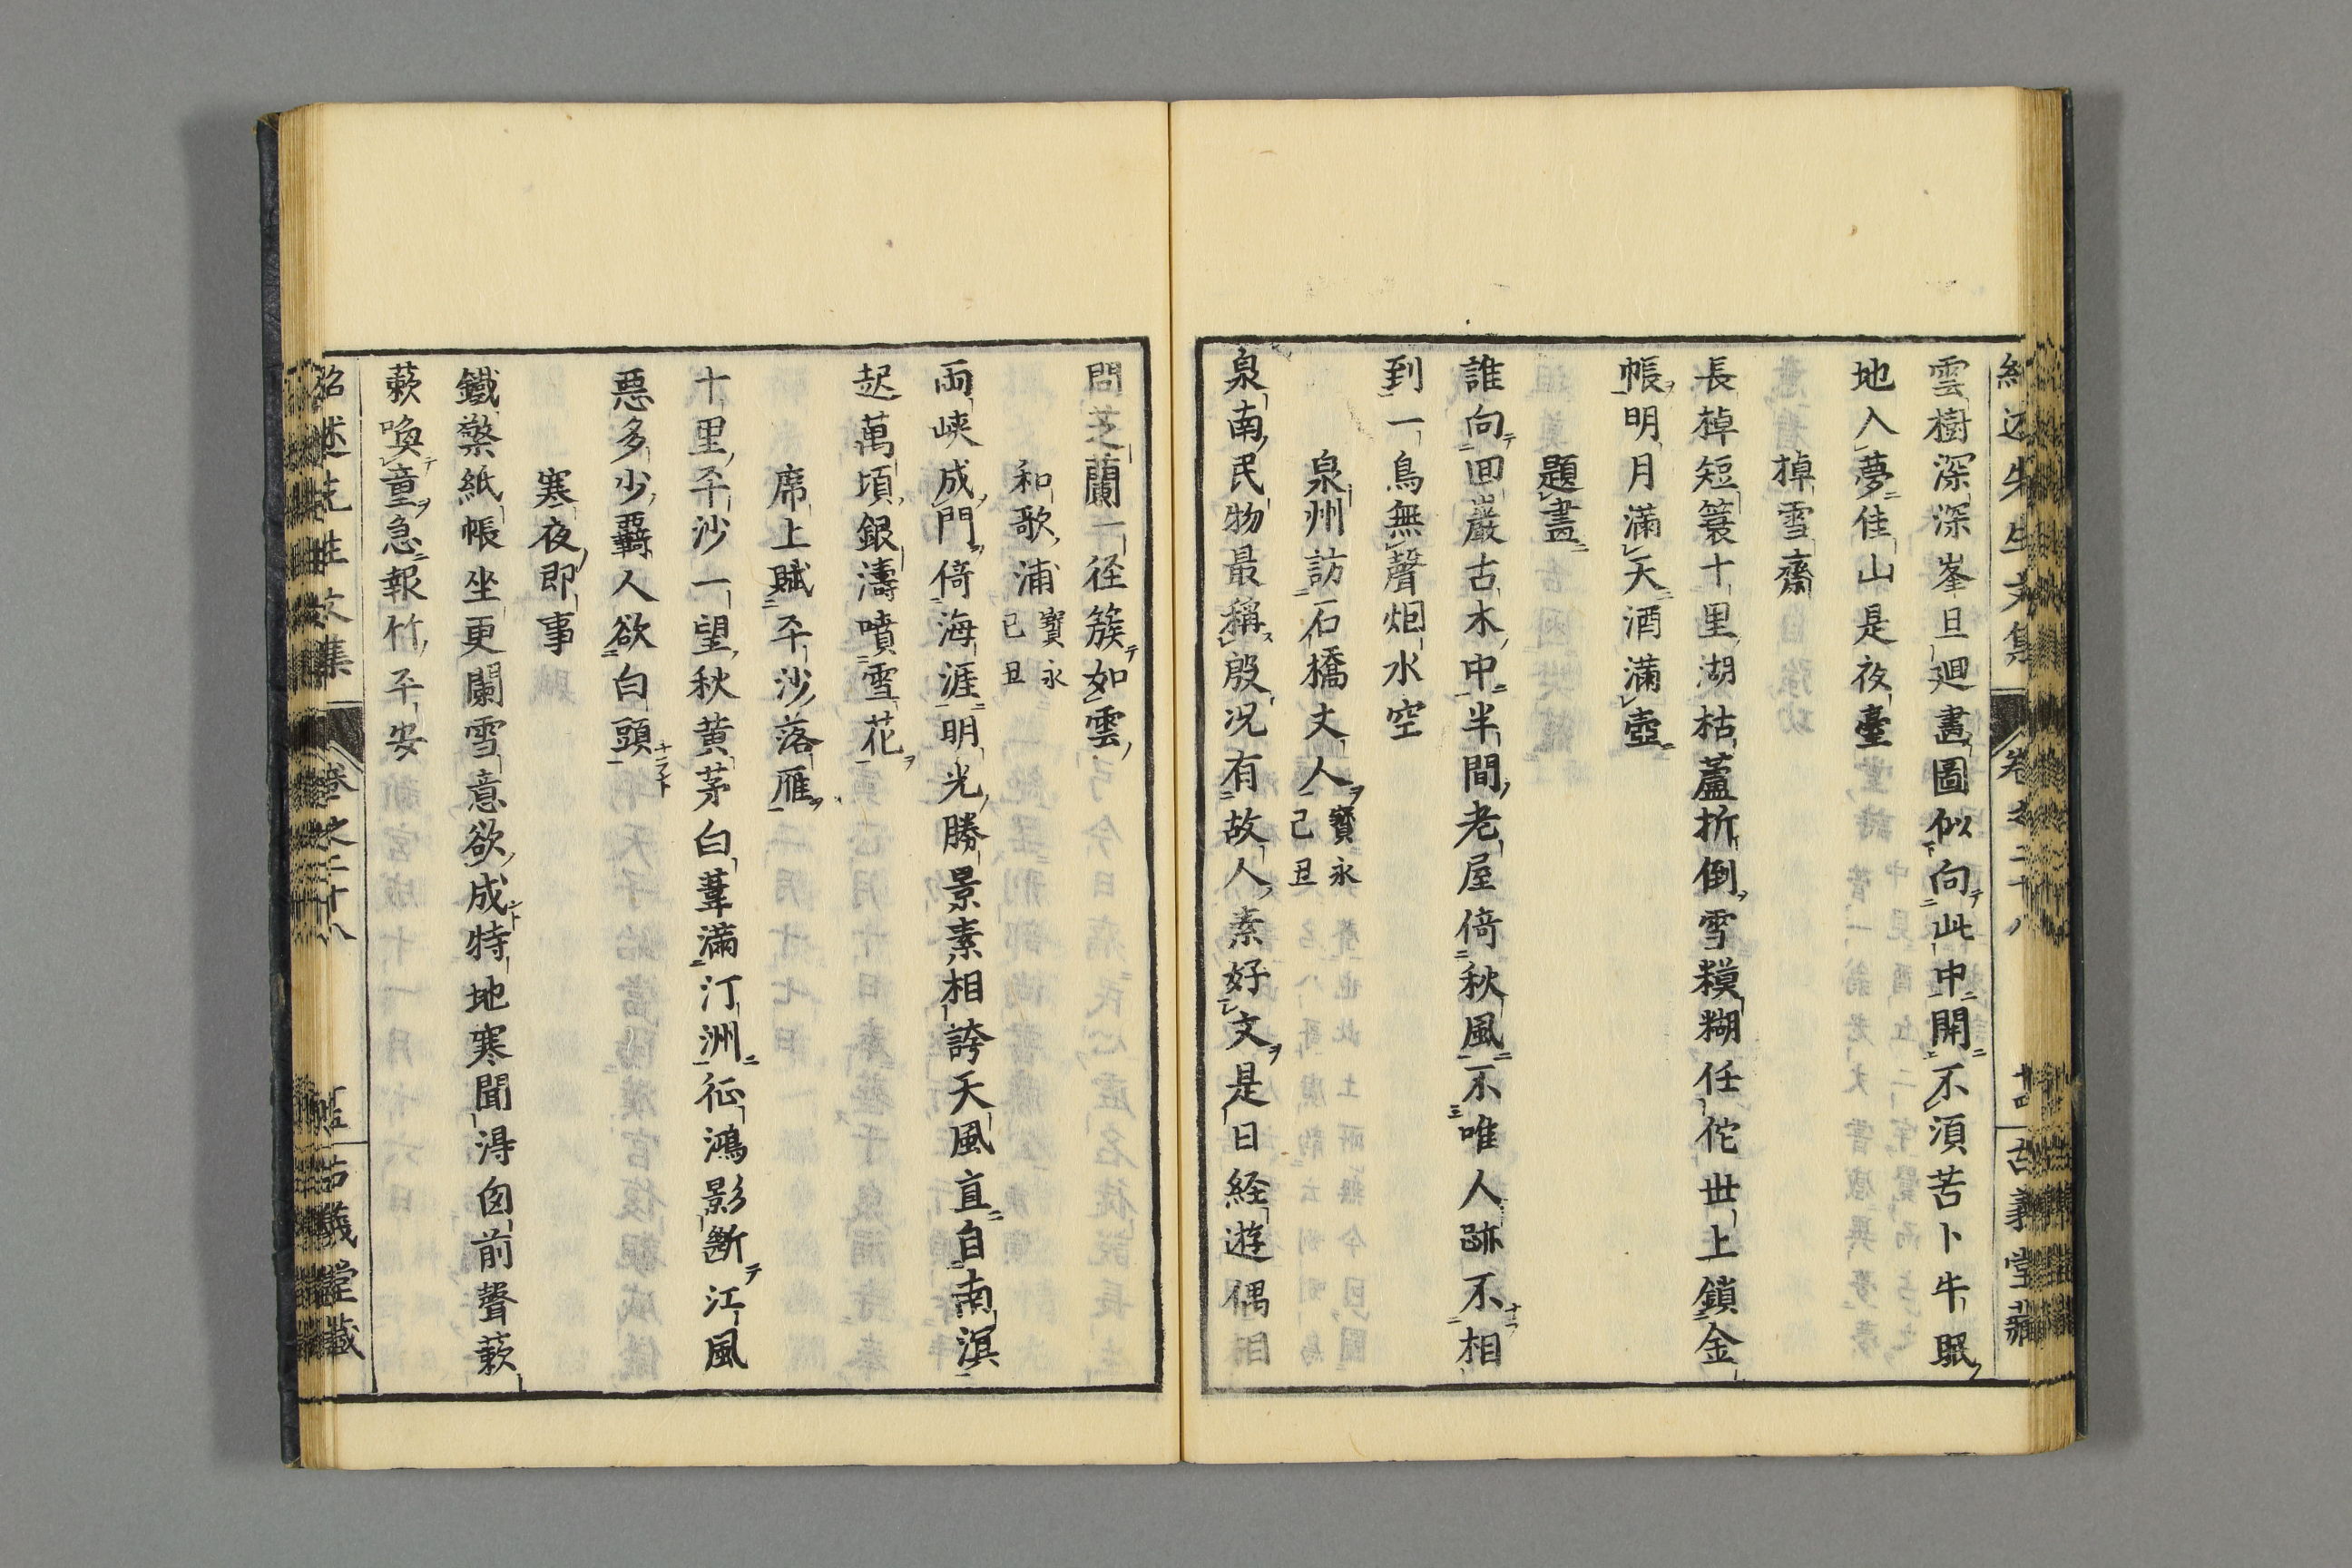 紹述先生文集 卷之二十八 古義堂藏
雲樹深深峯且廻畫圖似向此中開不須苦卜牛眠
地入夢佳山是夜臺
棹雪齋
長棹短簑十里湖枯蘆折倒雪糢糊任佗世上鎖金
帳明月滿天酒滿壺
題畫
誰向回巖古木中半間老屋倚秋風不唯人跡不相
到一鳥無聲烟水空
泉州訪石橋丈人寶永己丑
泉南民物最稱殷况有故人素好文是日経遊偶相
問芝蘭一径簇如雲
和歌浦寶永己丑
両峡成門倚海涯明光勝景素相誇天風直自南溟
起萬頃銀濤噴雪花
席上賦平沙落雁
十里平沙一望秋黄茅白葦滿汀洲征鴻影斷江風
惡多少羇人欲白頭
寒夜即事
鐵檠紙帳坐更闌雪意欲成特地寒聞得囱前聲蔌
蔌喚童急報竹平安
紹述先生文集 卷之二十八 古義堂藏